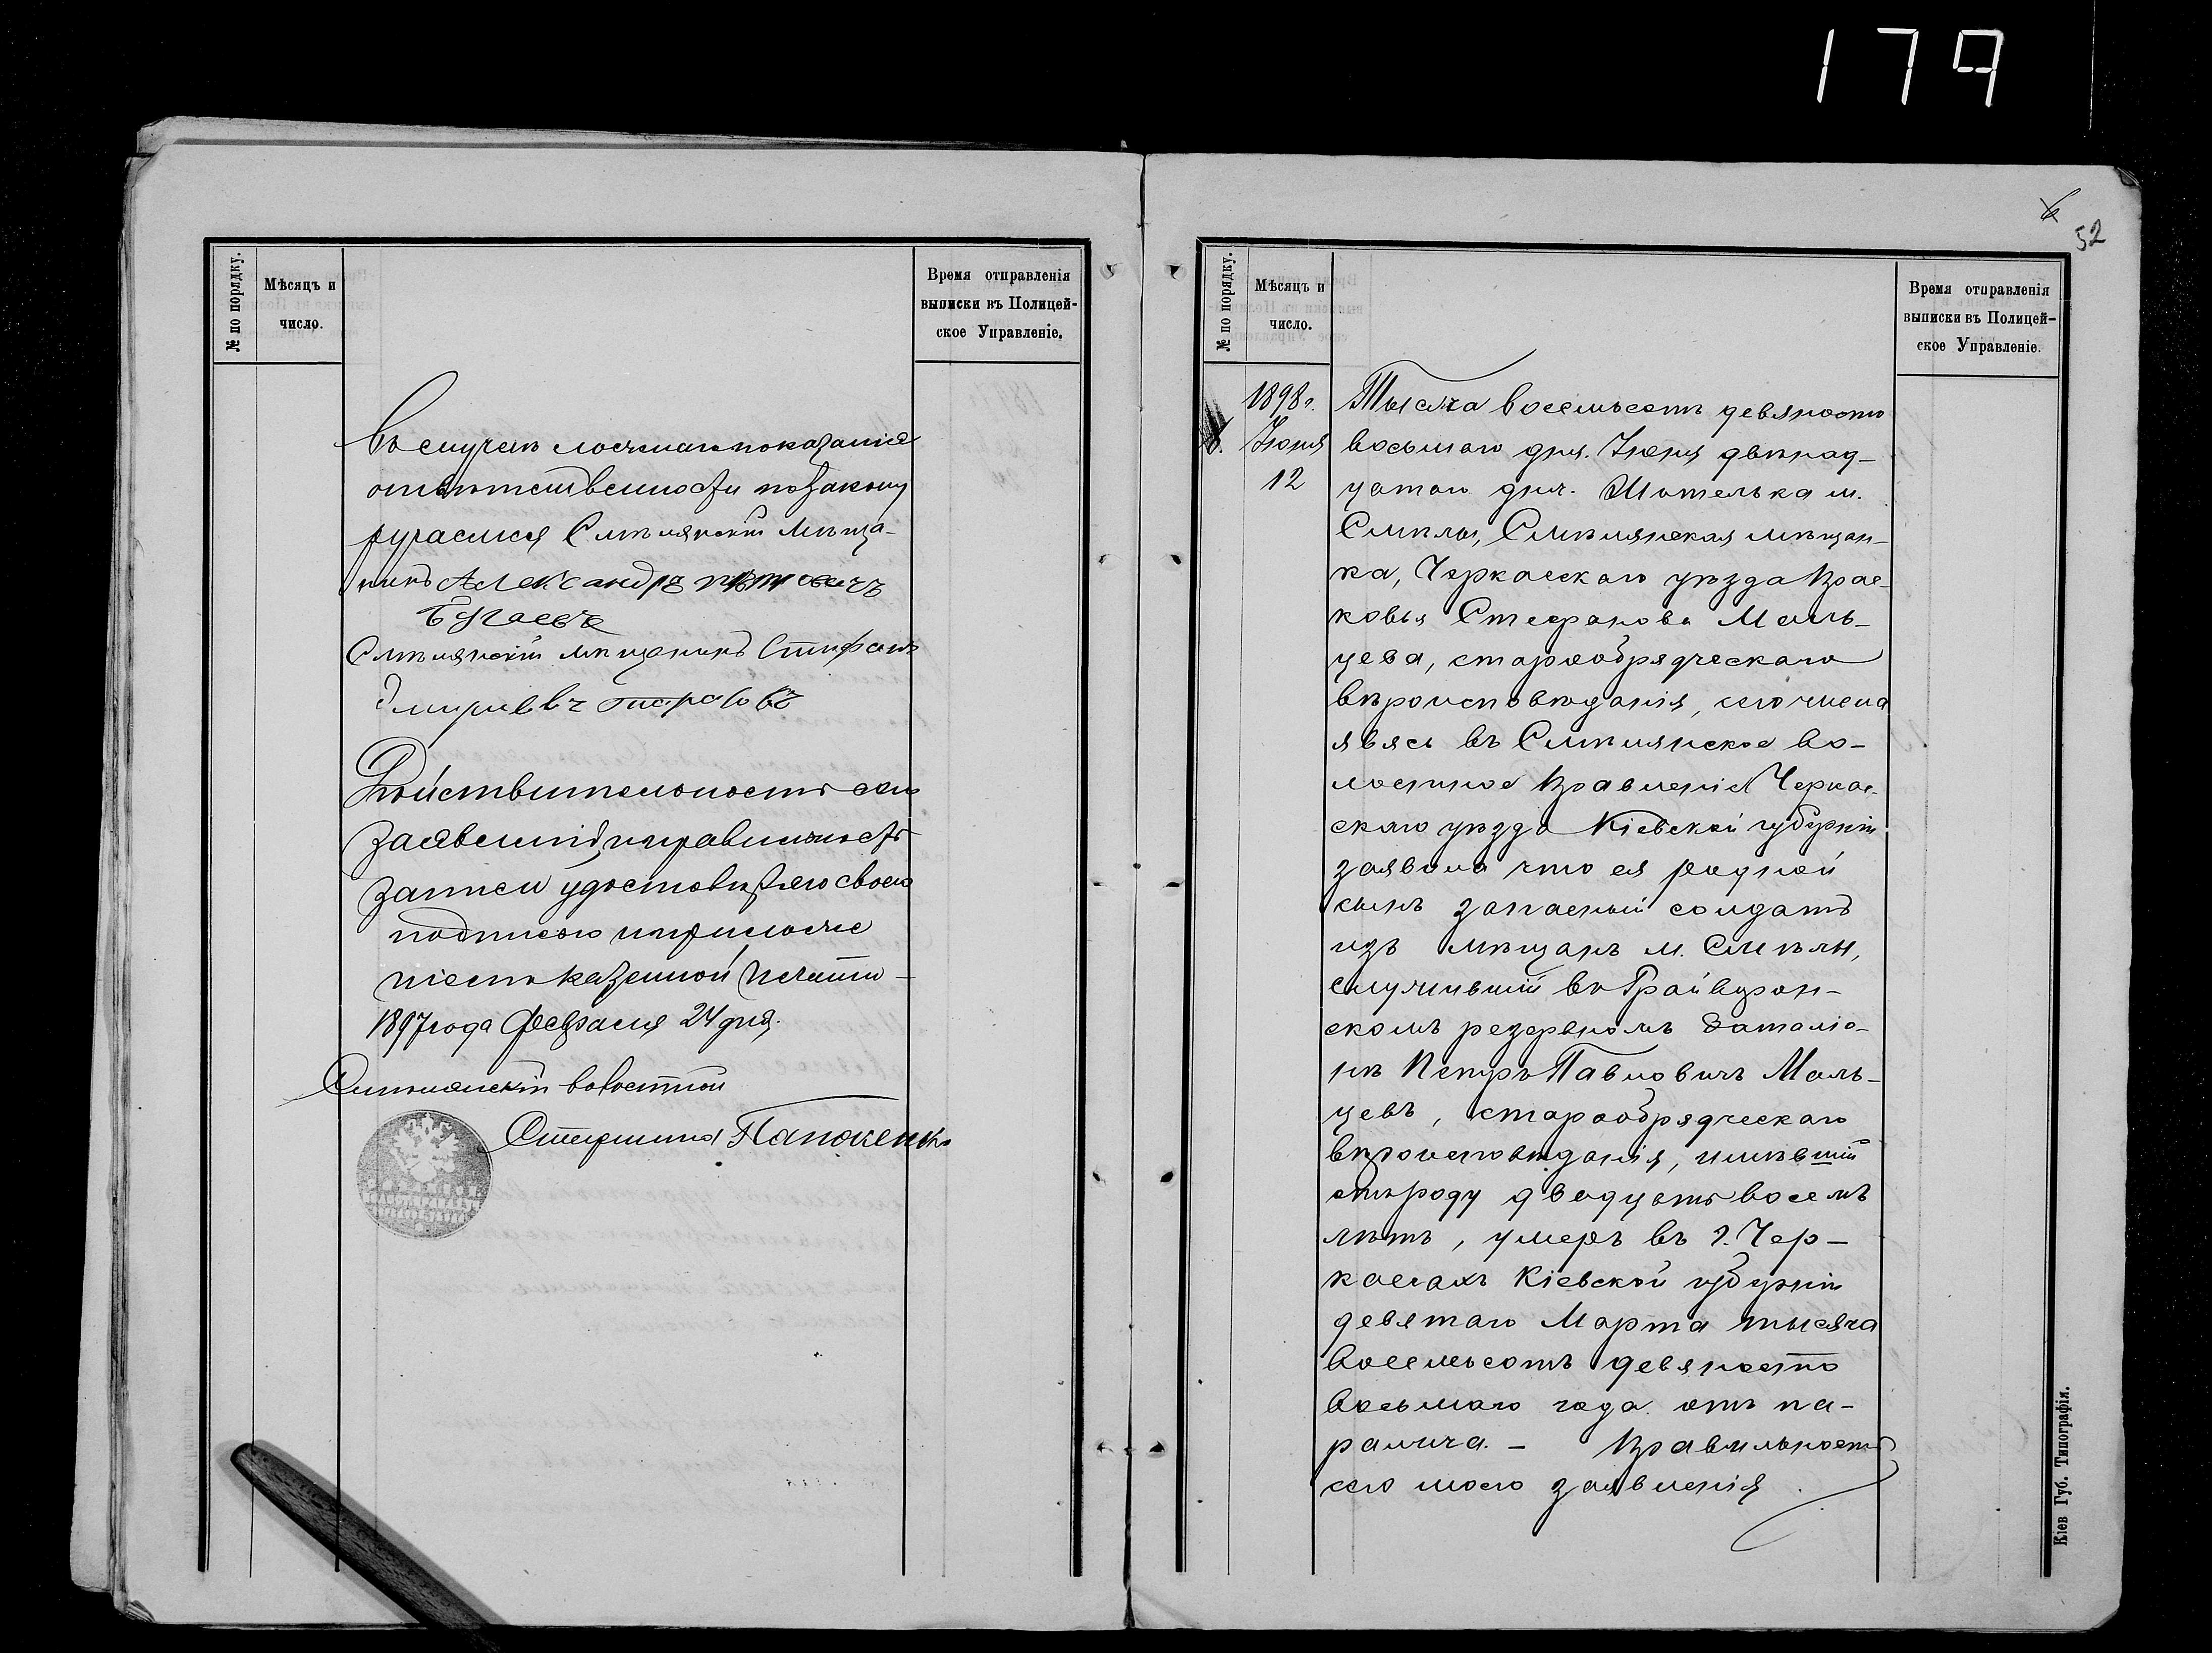 179
52
№ по порядку.
Мѣсяцъ и
число.
Время отправленія
выписки въ Полицей-
ское Управленіе.
Въ случаѣ ложнаго показанія
отвѣтственности по закону
ручаемся Смѣлянскій Мѣща-
нинъ Александръ
Бугаевъ
Смѣлянскій мѣщанинъ
Дѣйствительность сего
заявленія и правильность
записи удостовѣряю своею
подписью и приложе
ніемъ казенной печати -
1897 года Февраля 24 дня.
Смѣлянскій волостной
Старшина Папюженко
№ по порядку.
Мѣсяцъ и
число.
Время отправленія
выписки въ Полицей-
ское Управленіе.
1898 г.
Іюня
12
Тысяча восемьсотъ девяносто
восьмаго дня. Іюня двѣнад-
цатаго дня. Жителька м.
Смѣлы, Смѣлянская мѣщан-
ка, Черкасскаго уѣзда Прас-
ковья Стефанова Маль-
цева, старообрядческаго
вѣроисповѣданія, сего числа
явясь въ Смѣлянское во-
лостное Правленіе Черкас-
скаго уѣзда Кіевской губерніи
заявила что ея родной
сынъ запасный солдатъ
изъ мѣщанъ м. Смѣлы,
служившій въ Грайворон-
скомъ резервномъ баталіо-
нѣ Петръ Павловичъ Маль-
цевъ, старообрядческаго
вѣроисповѣданія, имѣвшій
отъ роду двадцать восемъ
лѣтъ, умеръ въ г. Чер-
касахъ Кіевской губерніи
девятаго Марта тысяча
восемьсотъ девяносто
восьмаго года отъ па-
ралича. - Правильность
сего моего заявленія
Кіев Губ. Типографія.